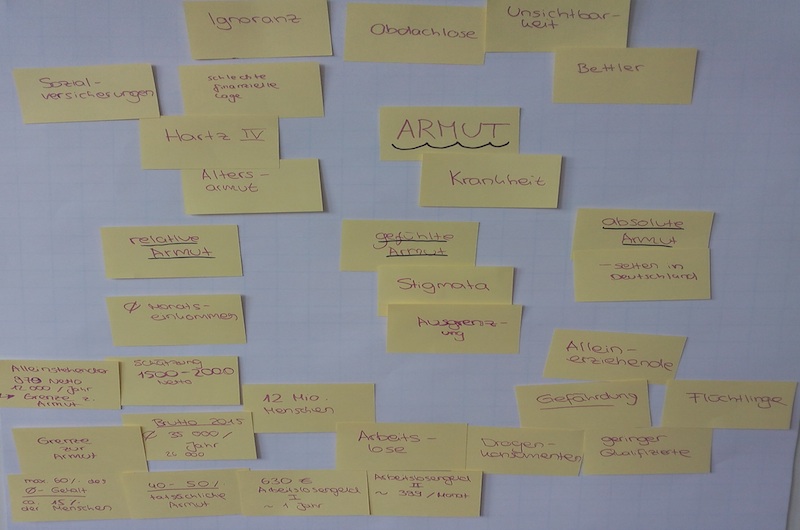 Ignoranz
Obdachlose
Unsichtbar-
keit
Bettler
Sozial-
versicherungen
schlechte
finanzielle
Lage
Hartz IV
ARMUT
Alters-
armut
Krankheit
relative
Armut
gefühlte
Armut
absolute
Armut
Stigmata
- selten in
Deutschland
Ø Monats-
einkommen
Ausgrenz-
ung
Allein-
erziehende
Alleinstehender
Netto
12 000 / Jahr
Grenze z.
Armut
Schätzung
1500 - 2000
Netto
12 Mio.
Menschen
Gefährdung
Flüchtlinge
Grenze
zur
Armut
Brutto 2015
Ø 35 000 /
Jahr
Arbeits
- lose
Drogen-
konsumenten
geringer
Qualifizierte
max 60% des
Ø- Gehalt
ca. 15%
der Menschen
40 - 50%
tatsächliche
Armut
630 €
Arbeitslosengeld
I
~ 1 Jahr
Arbeitslosengeld
II
~ 399 / Monat